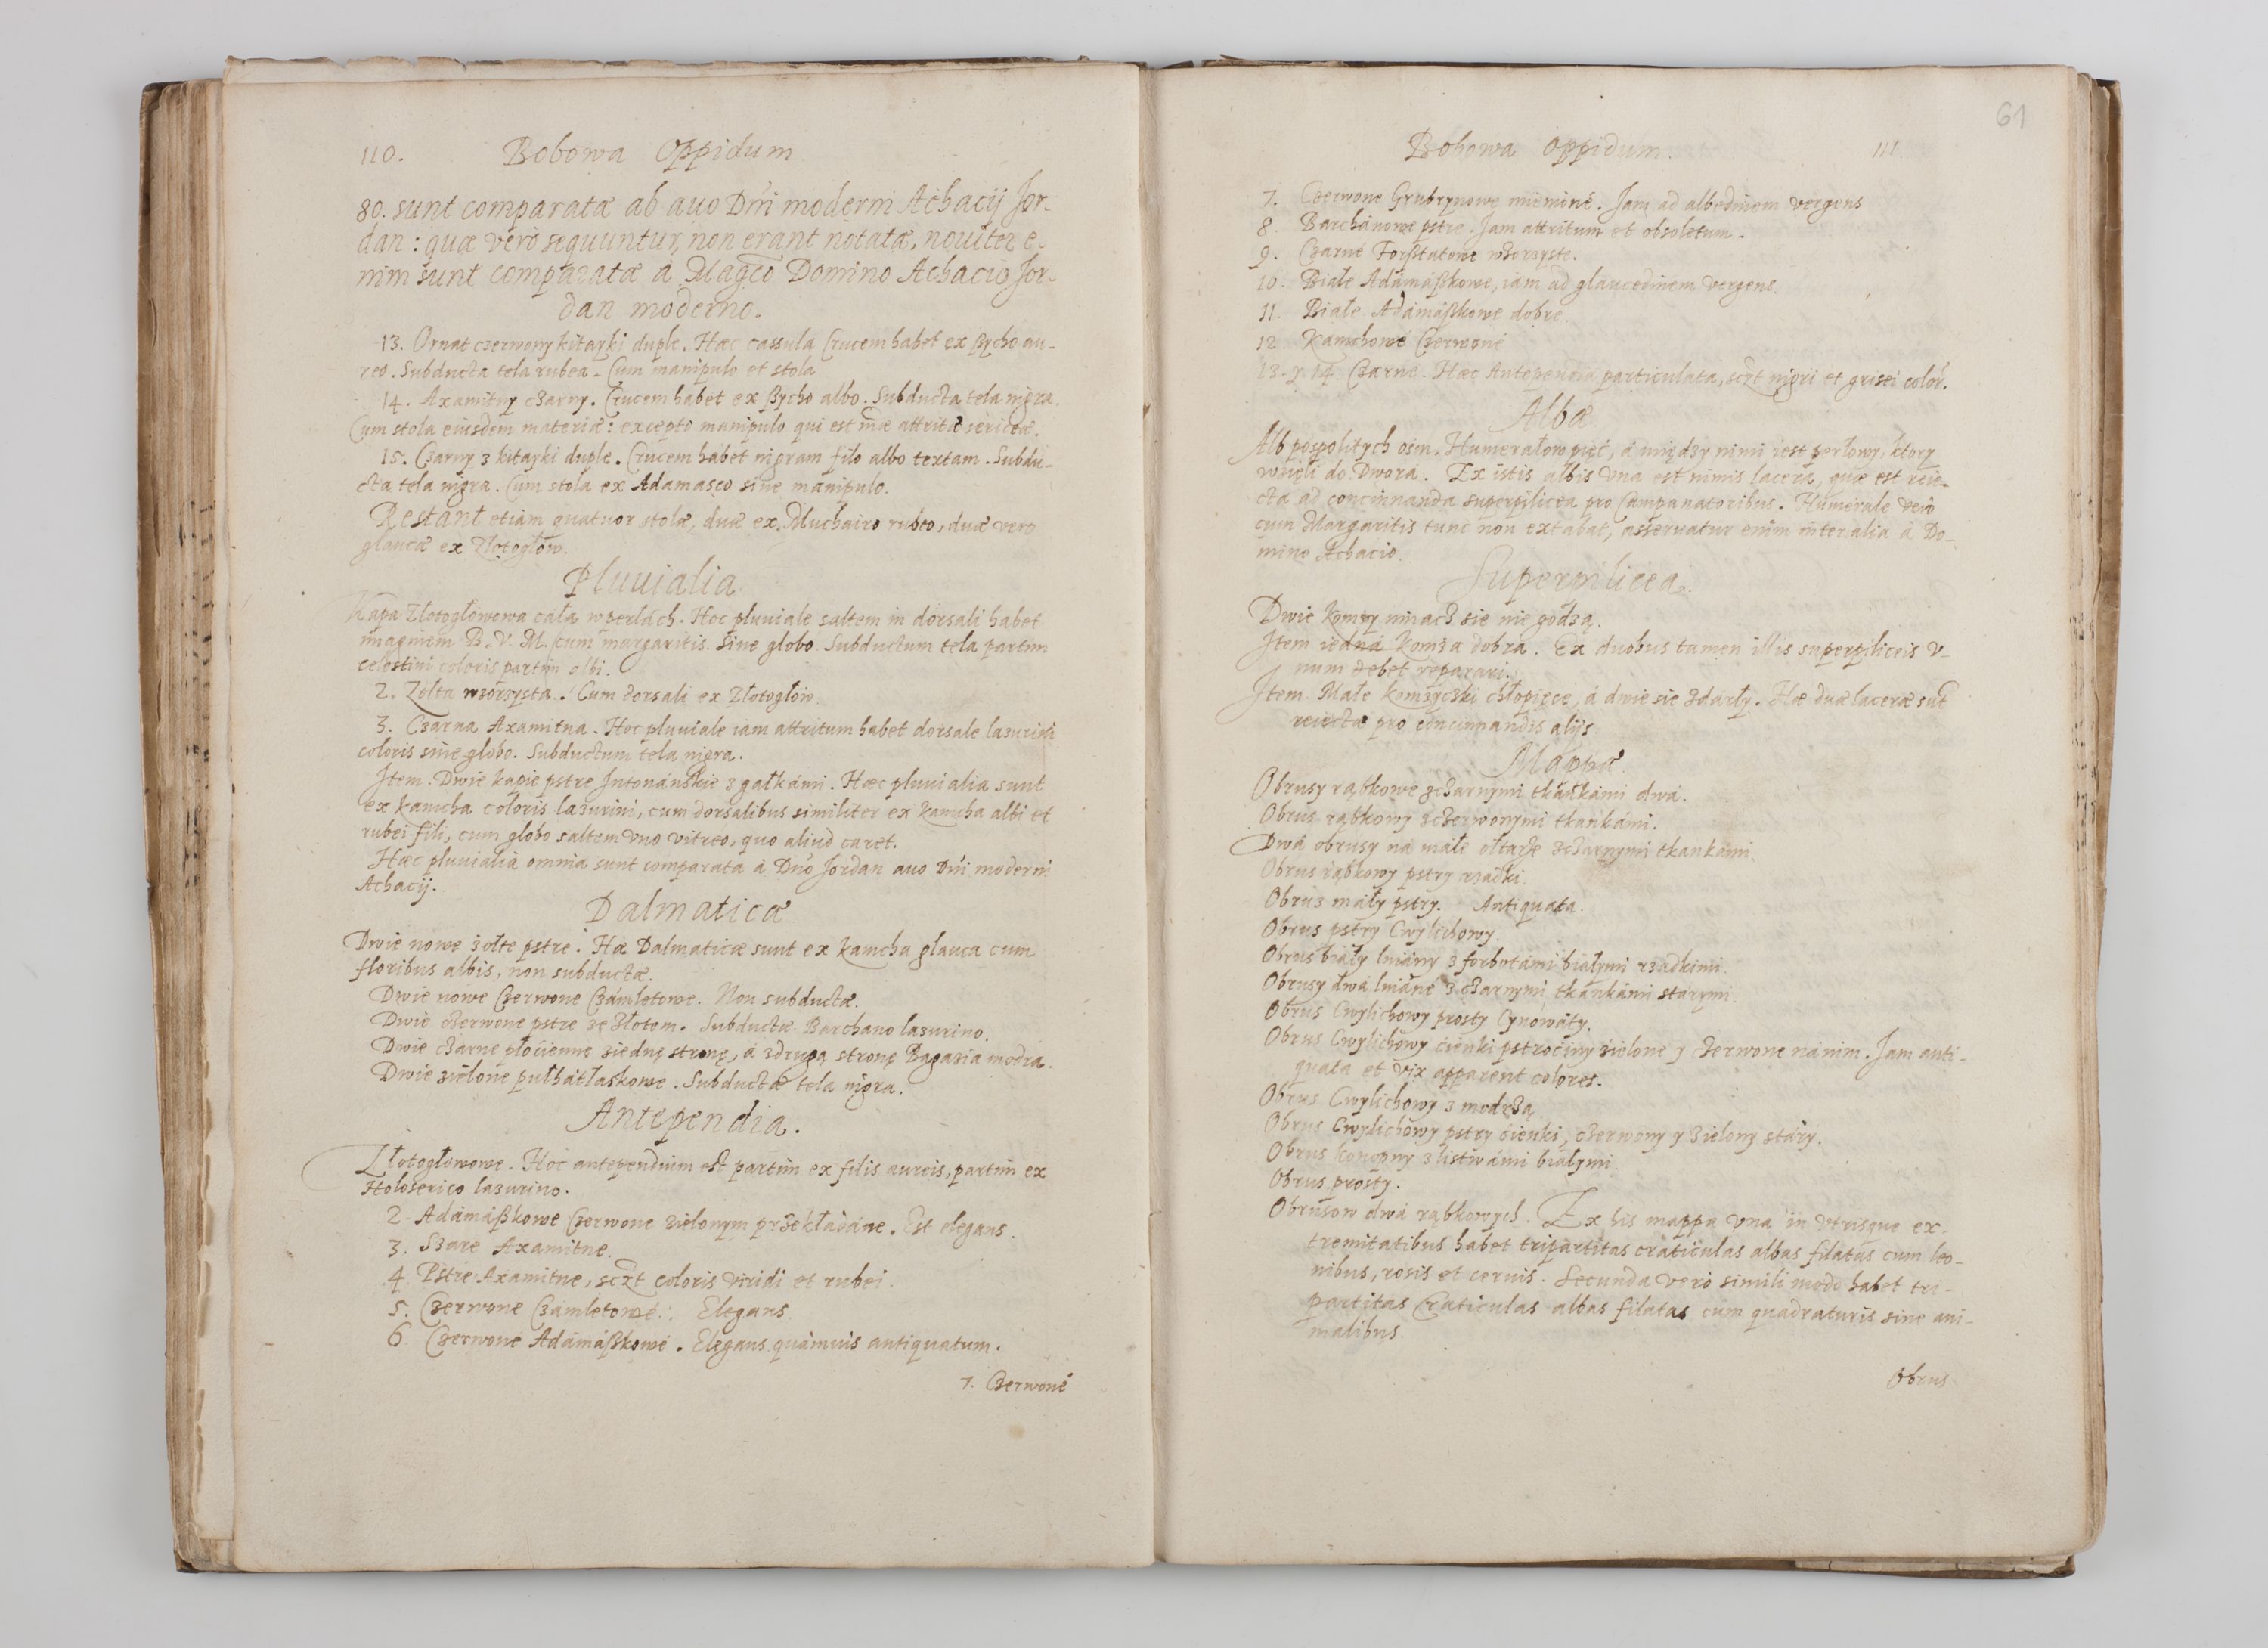 110. Bobowa Oppidum
80. sunt comparatæ ab auo Dñi moderni Achacij Jor-
dan : quæ verò sequuntur, non erant notatæ, nouiter e-
nim sunt comparatæ à Magco Domino Achacio Jor-
dan moderno.
13. Ornat czerwony kitayki duple. Hæc cassula Crucem habet ex Bycho au-
reo. Subducta tela rubea. Cum manipulo et stola
14. Axamitny czarny. Crucem habet ex Bycho albo. Subducta tela nigra.
Cum stola eiusdem materiæ: excepto manipulo qui est mæ attritæ sericeæ.
15. Czarny z kitayki duple. Crucem habet nigram filo albo textam. Subdu-
cta tela nigra. Cum stola ex Adamasco sine manipulo.
Restant etiam quatuor stolæ, duæ ex Muchairo rubeo, duæ vero
glaucæ ex Złotogłow.
Pluuialia
Kapa Złotogłowowa cała w perłach. Hoc pluuiale saltem in dorsali habet
imaginem B. V. M. cum margaritis. Sine globo. Subductum tela partim
celestini coloris partim albi.
2. Zołta wzorzysta. Cum dorsali ex Złotogłow.
3. Czarna Axamitna. Hoc pluuiale iam attritum habet dorsale lazurini
coloris sine globo. Subductum tela nigra.
Jtem. Dwie kapie pstre Jntonánskie z gałkámi. Hæc pluuialia sunt
ex kamcha coloris lazurini, cum dorsalibus similiter ex kamcha albi et
rubei fili, cum globo saltem vno vitreo, quo aliud caret.
Hæc pluuialia omnia sunt comparata à Dño Jordan auo Dñi moderni
Achacij.
Dalmaticæ
Dwie nowe żołte pstre. Hæ Dalmaticæ sunt ex kamcha glauca cum
floribus albis, non subductæ.
Dwie nowe Czerwone Czámletowe. Non subductæ.
Dwie czerwone pstre ze Złotem. Subductæ Barchano lazurino.
Dwie czarne płocienne ziednę stronę, á zdrugą stronę Bagazia modra.
Dwie zielone pułhátłaskowe. Subductæ tela nigra.
Antependia.
Złotogłowowe. Hoc antependium est partim ex filis aureis, partim ex
Holoserico lazurino.
2. Adámászkowe Czerwone zielonym przekładáne. Est elegans.
3. Szare Axamitne.
4. Pstre Axamitne, sczt coloris viridi et rubei.
5. Czerwone Czámletowé. Elegans.
6. Czerwoné Adámászkowé. Elegans quàmuis antiquatum.
7. Czerwoné
61
Bobowa Oppidum. 111
7. Czerwone Grubrynowe mieniоné. Jam ad albedinem vergens
8. Barchánowe pstre. Jam attritum et obsoletum.
9. Czarné Forsztatowe wzorzyste.
10. Białe Adámászkowe, iam ad glaucedinem vergens.
11. Białe Adámászkowe dobre.
12. Kámchowé Czerwoné
13. y 14. Czarné. Hæc Antependia particulata, sczt nigri et grisei color.
Albæ
Alb pospolitych osm. Humerałow pięć, á między nimi iest perłowy, ktory
wzięli do Dworá. Ex istis albis vna est nimis lacera, quæ est reie-
cta ad concinnanda superpilicea pro Campanatoribus. Humerale verò
cum Margaritis tunc non extabat, asseruatur enim inter alia à Do-
mino Achacio.
Superpilicea
Dwie komży ninacz sie nie godzą.
Jtem iedná komża dobra. Ex duobus tamen illis superpiliceis v-
num debet reparari.
Jtem Małe komżyczki chłopięce, á dwie sie zdarły. Hæ duæ laceræ sũt
reiectæ pro concinnandis alijs
Mappæ
Obrusy rąbkowe zczarnymi tkánkámi dwá.
Obrus rąbkowy zczerwonymi tkankámi.
Dwá obrusy ná małé ołtarze zczarnymi tkankámi.
Obrus rąbkowy pstry rzadki.
Obrus mały pstry. Antiquata.
Obrus pstry Cwylichowy.
Obrus biały lniány z forbotámi białymi rzadkimi.
Obrusy dwá lniáné z czarnymi tkánkámi starymi.
Obrus Cwylichowy prosty Cynowáty.
Obrus Cwylichowy cienki pstrociny zielone y czerwone nánim. Jam anti-
quata et vix apparent colores.
Obrus Cwylichowy z modrzą
Obrus Cwylichowy pstry cienki, czerwony y zielony stáry.
Obrus konopny z listwámi białymi.
Obrus prosty.
Obrusow dwá rąbkowych. Ex his mappa vna in vtrisque ex-
tremitatibus habet tripartitas craticulas albas filatas cum leo-
nibus, rosis et ceruis. Secunda verò simili modo habet tri-
partitas Craticulas albas filatas cum quadraturis sine ani-
malibus.
Obrus